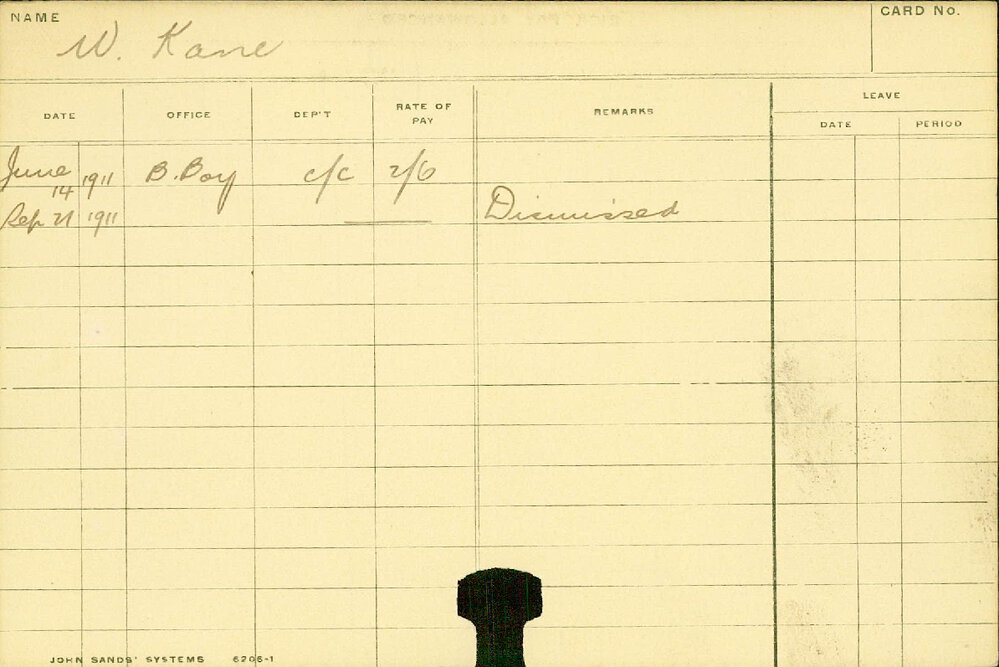 NAME
CARD NO.
W. Kane
DATE OFFICE DEP'T RATE OF PAY REMARKS LEAVE
DATE PERIOD
June 14 1911 B. Boy c/c 2/6
Sep 21 1911 Dismissed
JOHN SANDS' SYSTEMS 6206-1